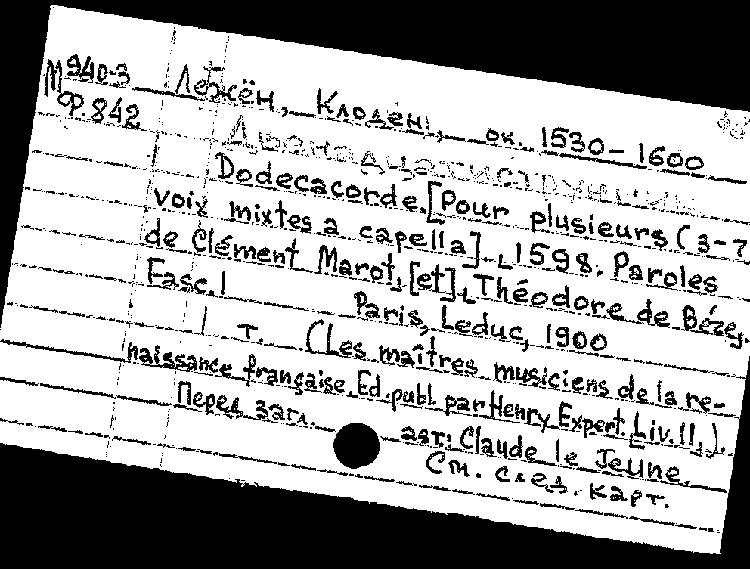 М940-3 Лежён, Клоден, ок. 1530–1600
Ф.842 Двенадцатиструнник
Dodecacorde. [Pour plusieurs (3-7
voix mixtes a capella]. 1598. Paroles
de Clément Marot, [et] Théodore de Bèze.
Fasc. 1 Paris, Leduc, 1900
1 т. (Les maîtres musiciens de la re-
naissance française. Ed. publ. par Henry Expert. Liv. 11.).
Перед загл. авт: Claude le Jeune.
См. след. карт.